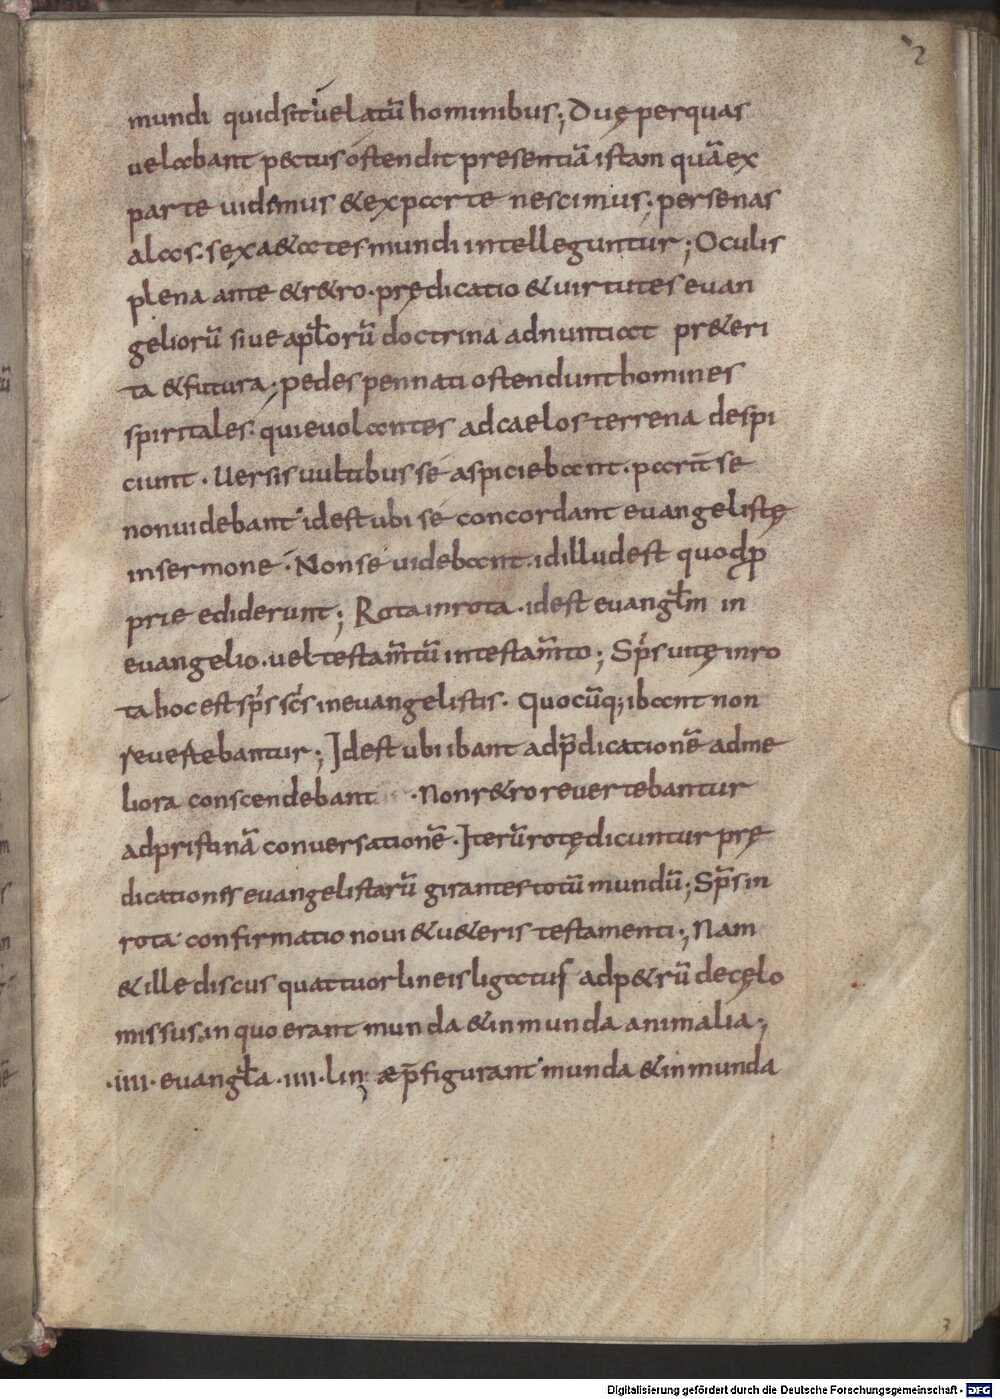 2
mundi quid sit uelatū hominibus; Duę per quas
uelabant pectus ostendit presentiā istam quā ex
parte uidimus & ex parte nescimus; per senas
alas. sex a&ates mundi intelleguntur; Oculis
plena ante & r&ro. prędicatio & uirtutes euan
geliorū siue apłorū doctrina adnuntiat pr&eri
ta & futura; pedes pennati ostendunt homines
spiritales. qui euolantes ad caelos terrena despi
ciunt. Uersis uultibus sé aspiciebant. parū se
non uidebant idest ubi sé concordant euangelistę
in sermone. Non sé uidebant. id illud est quod p̱
prie ediderunt; Rota in rota. idest euangłm in
euangelio. uel testam̄tū in testam̄to; Sp̄s uitę in ro
ta hoc est sp̄s sc̄s in euangelistis. Quocūq; ibant non
reuertebantur; Idest ubi ibant ad p̄dicationē ad me
liora conscendebant. Non r&ro reuertebantur
ad pristinā conuersationē. Iterū rotę dicuntur prę
dicationes euangelistarū girantes totū mundū; Sp̄s in
rota confirmatio noui & u&eris testamenti; Nam
& ille discus quattuor lineis ligatus ad p&rū de cęlo
missus. in quo erant munda & inmunda animalia;
.iiii. euangła .iiii. lineæ p̄figurant munda & inmunda
3
Digitalisierung gefördert durch die Deutsche Forschungsgemeinschaft - DFG